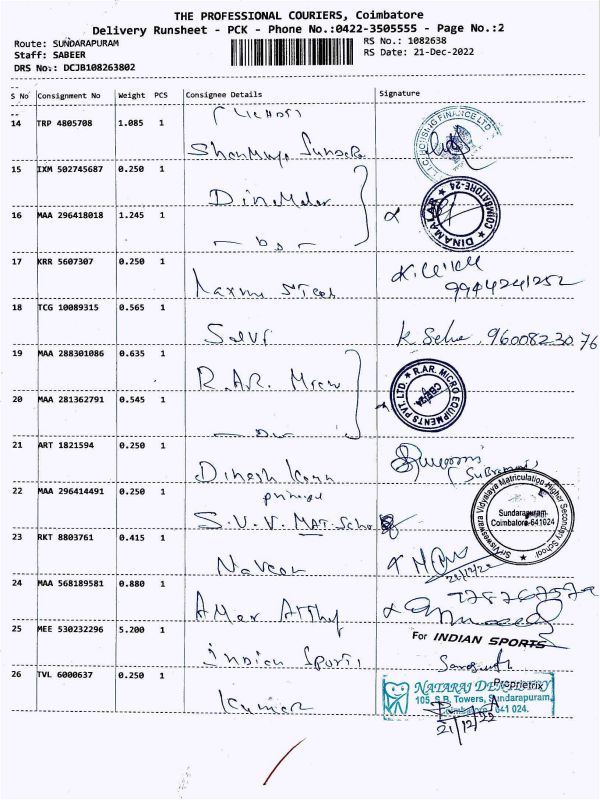 THE PROFESSIONAL COURIERS, Coimbatore
Delivery Runsheet - PCK - Phone No.:0422-3505555 - Page No.:2
Route: SUNDARAPURAM RS No.: 1082638
Staff: SABEER RS Date: 21-Dec-2022
DRS No.: DCJB108263802
S No Consignment No Weight PCS Consignee Details Signature
14 TRP 4805708 1.085 1
L.I.C HOUSING FINANCE LTD
15 IXM 502745687 0.250 1
Dinamalar
16 MAA 296418018 1.245 1
DINAMALAR COIMBATORE-24
17 KRR 5607307 0.250 1
Laxmi Steels
9944241252
18 TCG 10089315 0.565 1
Selvi K Selvi 9600823076
19 MAA 288301086 0.635 1
R.A.R. Micro
R.A.R. MICRO EQUIPMENTS PVT. LTD.
20 MAA 281362791 0.545 1
21 ART 1821594 0.250 1
Dinesh
22 MAA 296414491 0.250 1
S.V.V. MAT. Scho
Sri Visweswara Vidyalaya Matriculation Higher Secondary School
Sundarapuram
Coimbatore-641024
23 RKT 8803761 0.415 1
Naveen
21/12/22
24 MAA 568189581 0.880 1
Amer
25 MEE 530232296 5.200 1
For INDIAN SPORTS
Indian Sports
Proprietrix
26 TVL 6000637 0.250 1
Kumar
NATARAJ DENTAL CITY
105, S.B. Towers, Sundarapuram,
Coimbatore - 641 024.
21/12/22